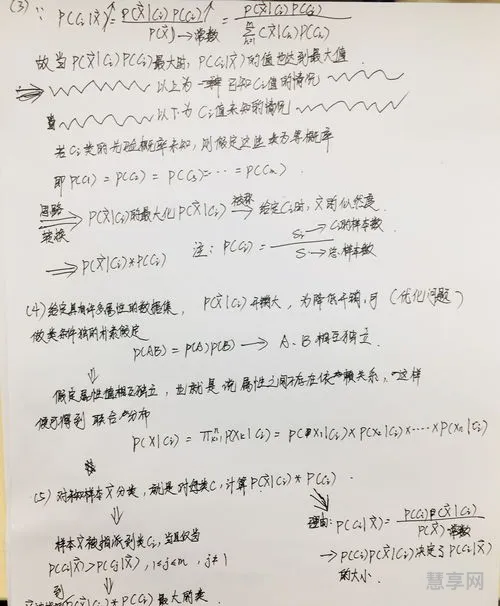 (3) ∵ P(Ci|X)↑ = P(X|Ci)P(Ci)↑ / P(X)→常数 = P(X|Ci)P(Ci) / Σ C(X|Ci)P(Ci)
故当 P(X|Ci)P(Ci)最大时, P(Ci|X)的值也达到最大值
以上为一种已知Ci值的情况
以下为Ci值未知的情况
若Ci类的先验概率未知, 则假定这些类为等概率
即 P(C1) = P(C2) = P(C3) = ··· = P(Cm)
思路转换 ⟹ P(X|Ci)的最大化 P(X|Ci) 给定Ci时, X的似然度
⟹ P(X|Ci)*P(Ci) 注: P(Ci) = Si→Ci的样本数 / S→总样本数
(4) 给定具有许多属性的数据集, P(X|Ci)开销大, 为降低开销, 可 (优化问题)
做类条件独立的朴素假定
P(AB) = P(A)P(B) → A、B相互独立
假定属性值相互独立, 也就是说属性之间不存在依赖关系, 这样
便可得到联合分布
P(X|Ci) = P(Xk|Ci) = P(X1|Ci) × P(X2|Ci) × ····· × P(Xn|Ci)
(5) 对未知样本X分类, 就是对每类Ci, 计算 P(X|Ci) * P(Ci).
理由: P(Ci|X) = P(Ci)P(X|Ci) / P(X) 常数
样本X被指派到类Ci, 当且仅当
P(Ci|X) > P(Cj|X), 1≤j≤m, j≠i
→ P(Ci)P(X|Ci)决定了P(Ci|X)
的大小.
到
P(X|Ci) * P(Ci) 最大的类
慧享网